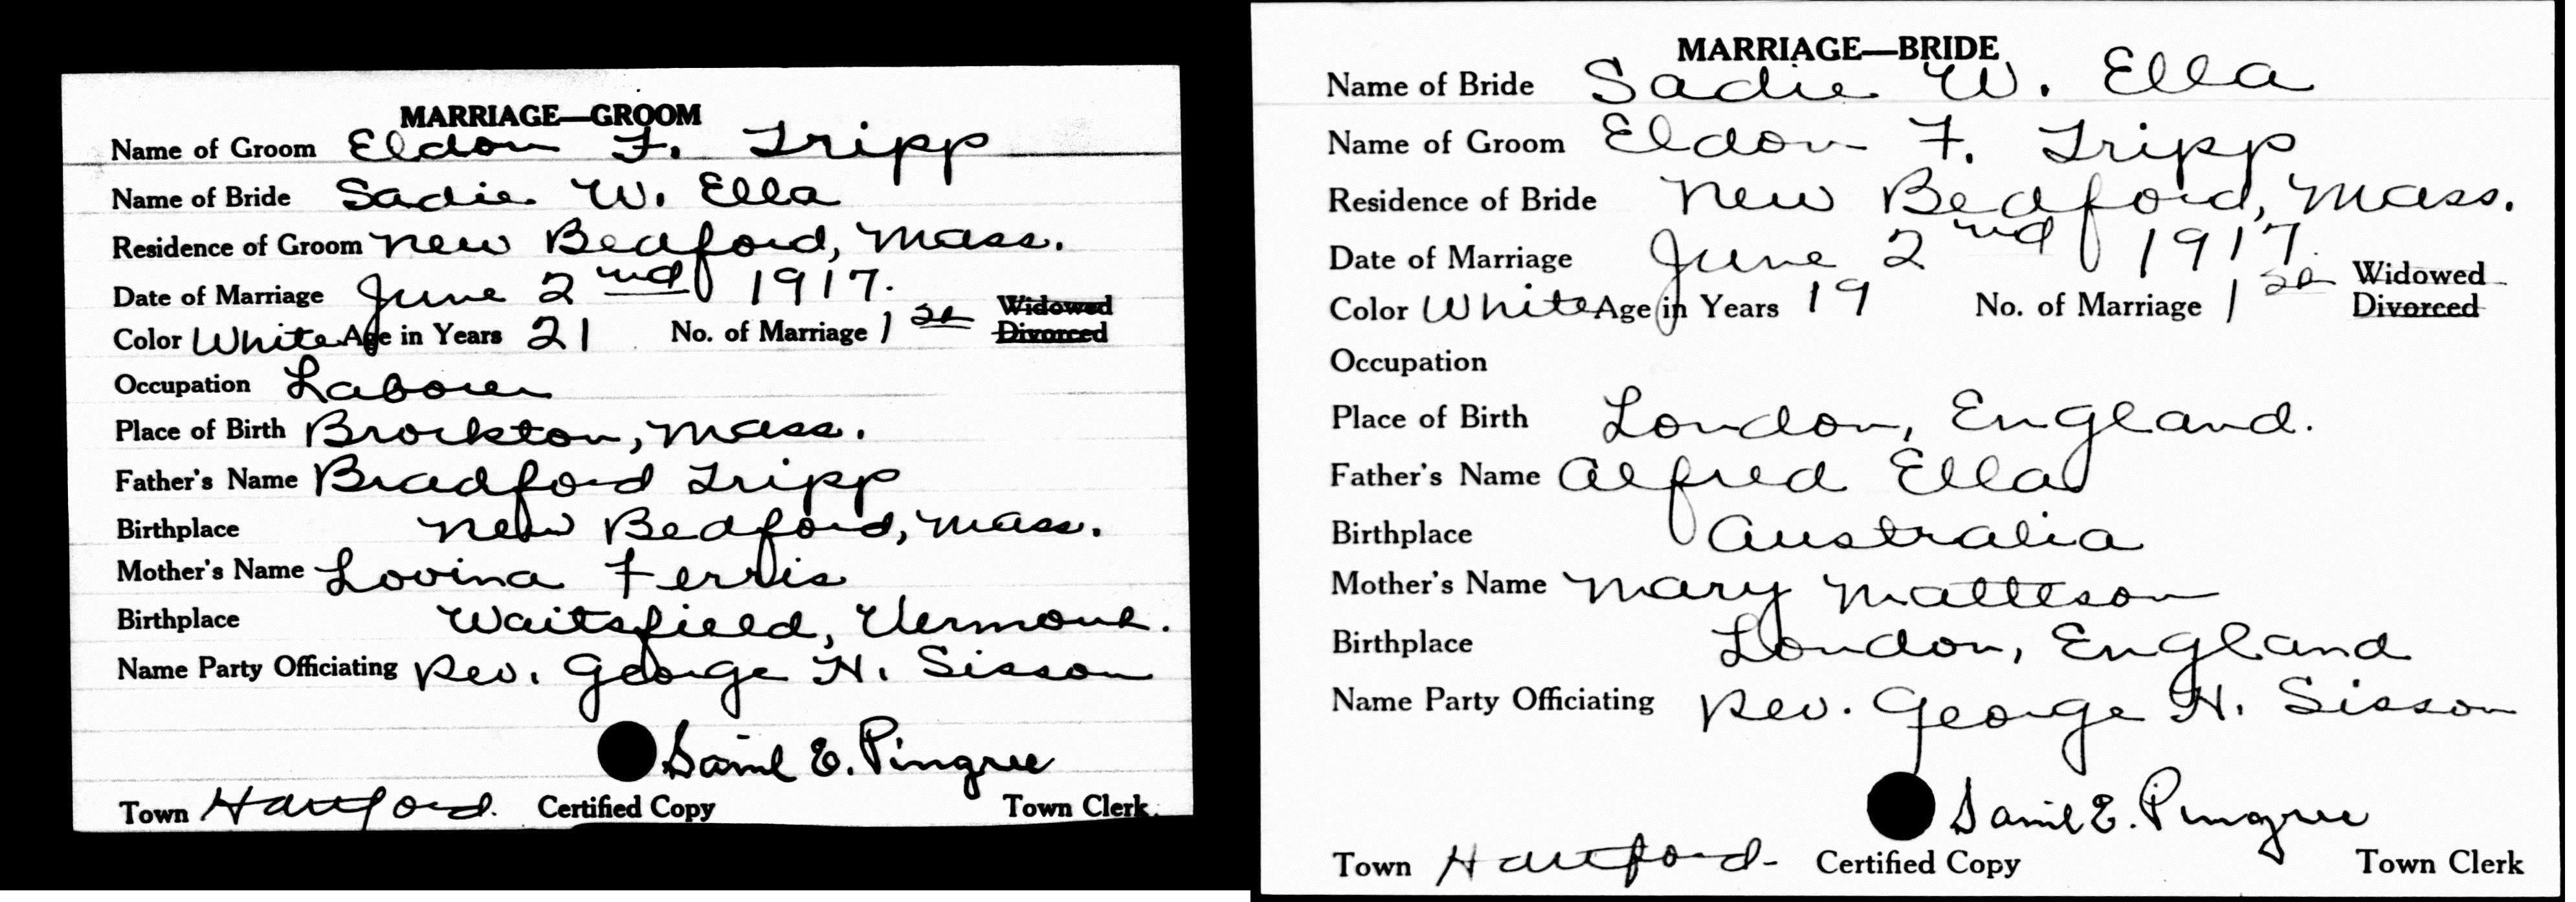 MARRIAGE—GROOM
Name of Groom Eldon F. Tripp
Name of Bride Sadie W. Ella
Residence of Groom New Bedford, Mass.
Date of Marriage June 2nd 1917.
Color White Age in Years 21 No. of Marriage 1st Widowed
Divorced
Occupation Laborer
Place of Birth Brockton, Mass.
Father's Name Bradford Tripp
Birthplace New Bedford, Mass.
Mother's Name Lovina Ferris
Birthplace Waitsfield, Vermont.
Name Party Officiating Rev. George H. Sisson
Saml E. Pingree
Town Hartford. Certified Copy Town Clerk.
MARRIAGE—BRIDE
Name of Bride Sadie W. Ella
Name of Groom Eldon F. Tripp
Residence of Bride New Bedford, Mass.
Date of Marriage June 2nd 1917.
Color White Age in Years 19 No. of Marriage 1st Widowed
Divorced
Occupation
Place of Birth London, England.
Father's Name Alfred Ella
Birthplace Australia
Mother's Name Mary Matteson
Birthplace London, England
Name Party Officiating Rev. George H. Sisson
Saml E. Pingree
Town Hartford- Certified Copy Town Clerk